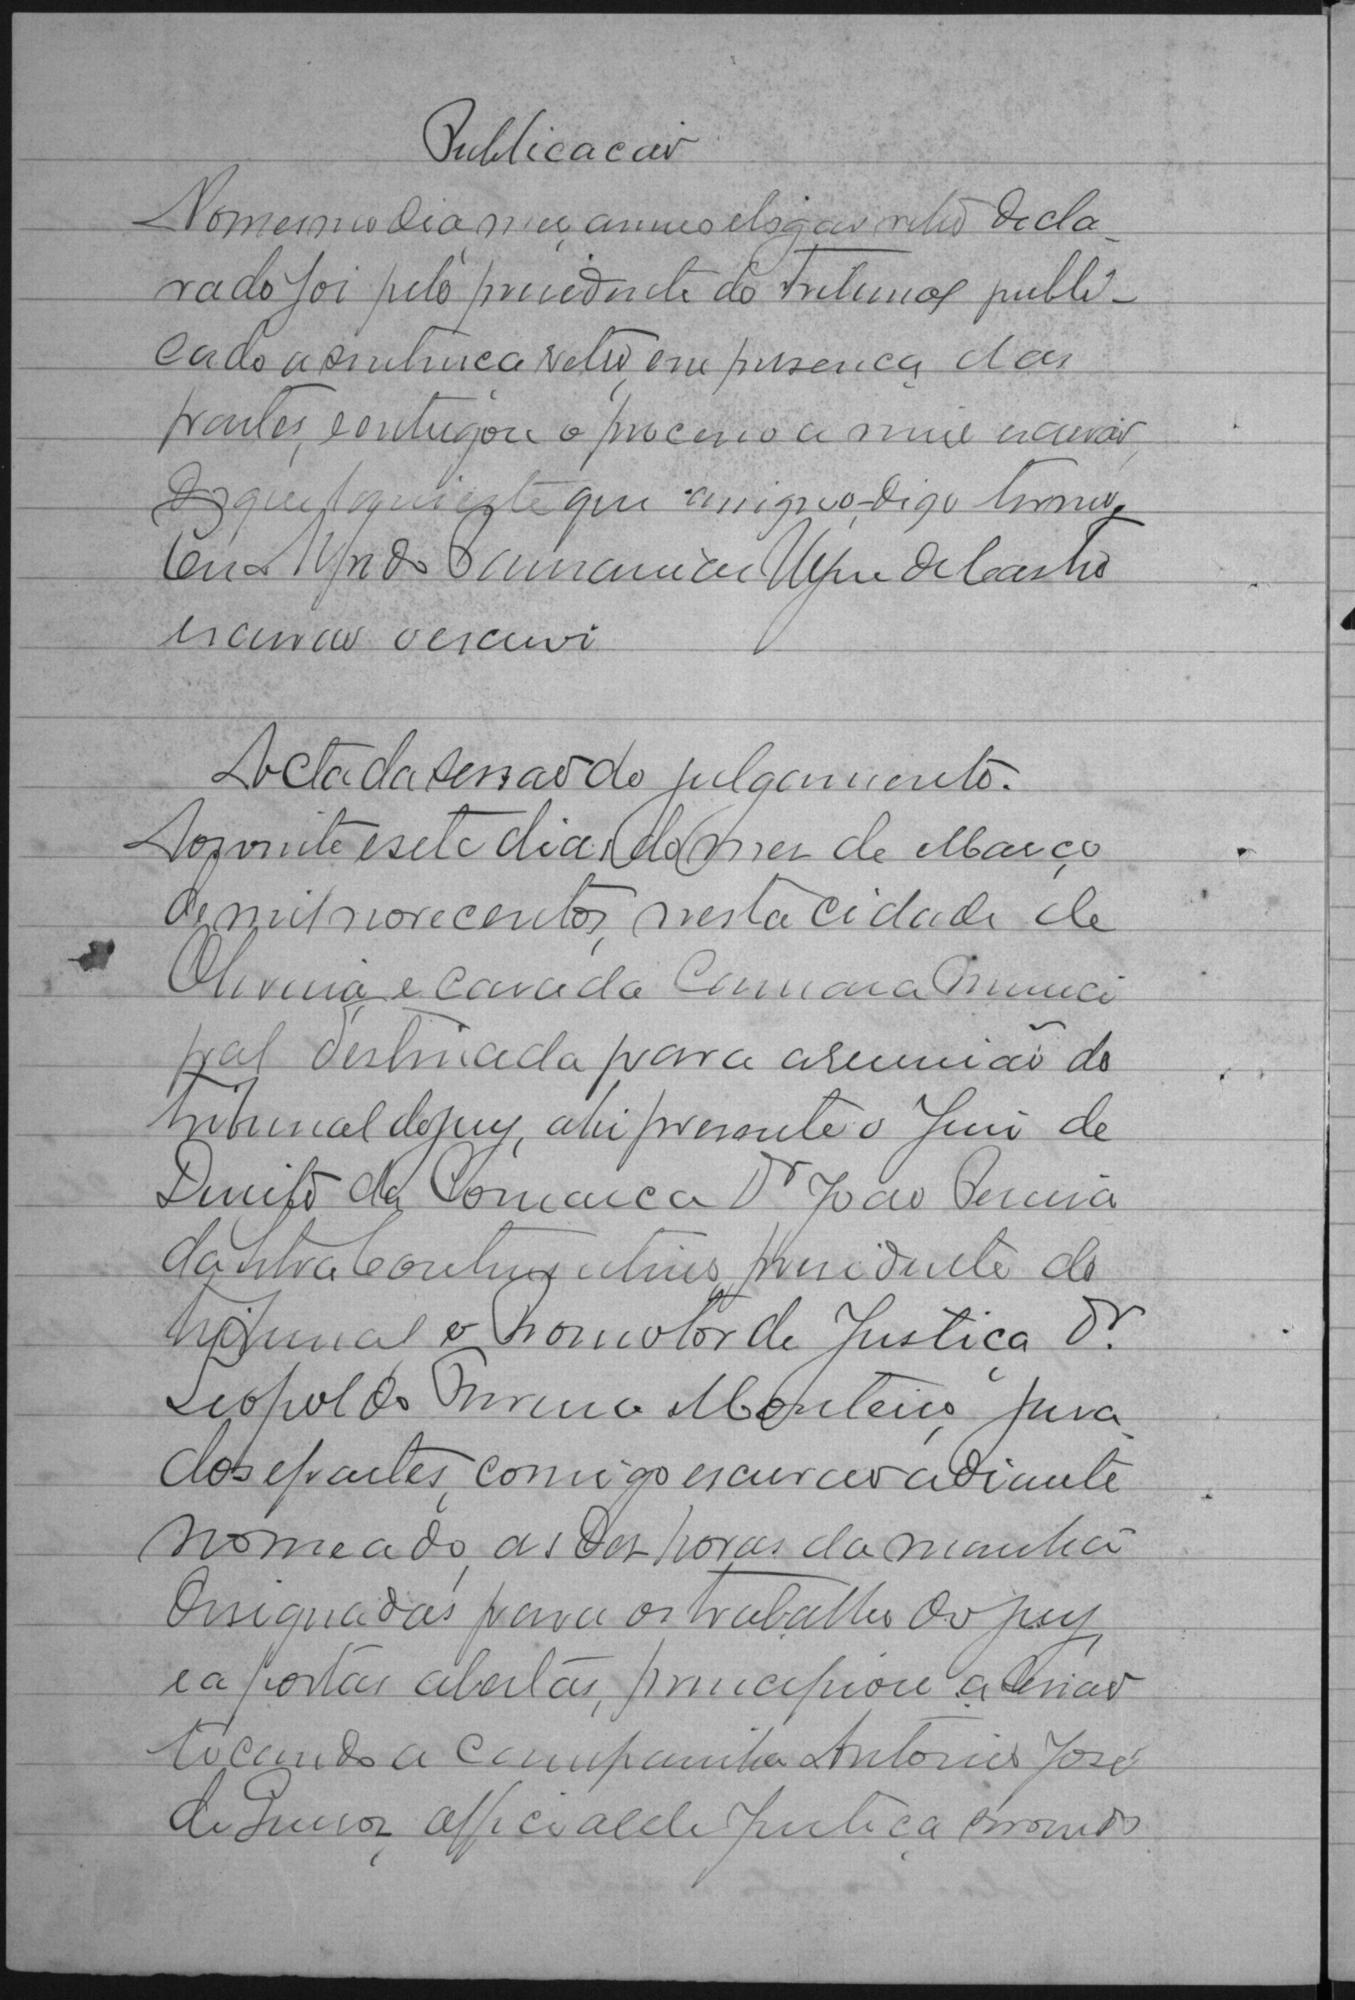 Publicacão
No mesmo dia, mez, anno e lugar retro decla-
rado foi pelo presidente do Tribunal publi-
cado a sentença retro, em presença das
partes, e entregou o processo a mim escrivão,
do que que assigno, digo termo.
Eu
escrivão o escrevi
Acta da sessão do julgamento.
Aos vinte e sete dias do mez de Março
de mil novecentos, nesta cidade de
Oliveira e casa da Camara Munici
pal destinada para a reunião do
tribunal do jury, ahi presente o Juiz de
Direito da Comarca Dr João Pereira
da Silva presidente do
tribunal o Promotor de Justiça Dr.
Leopoldo Ferreira Monteiro, jura-
dos e partes, comigo escrivão adiante
nomeado, as dez horas da manhã
designadas para os trabalhos do jury,
e a portas abertas, principiou a sessão
tocando a campainha Antonio José
de Souza, official de Justiça servindo